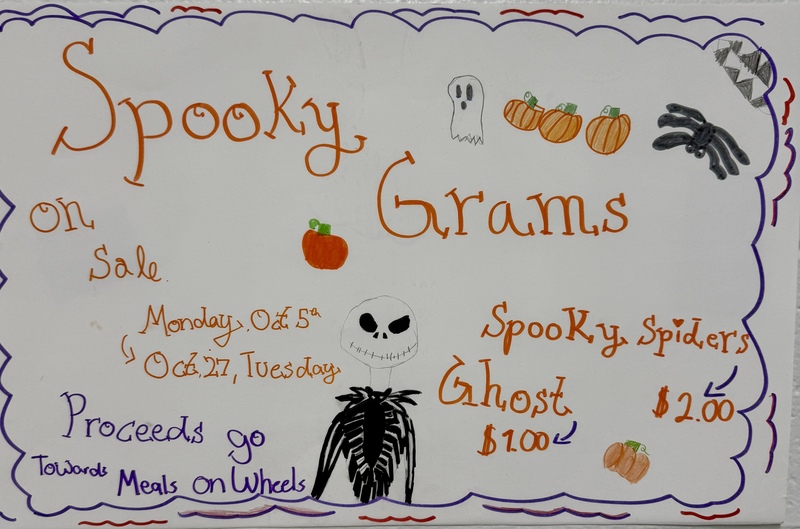 Spooky
Grams
on
Sale.
Monday, Oct 5th
Oct, 27, Tuesday
Proceeds go
Towards Meals on Wheels
Spooky Spiders
$2.00
Ghost
$1.00